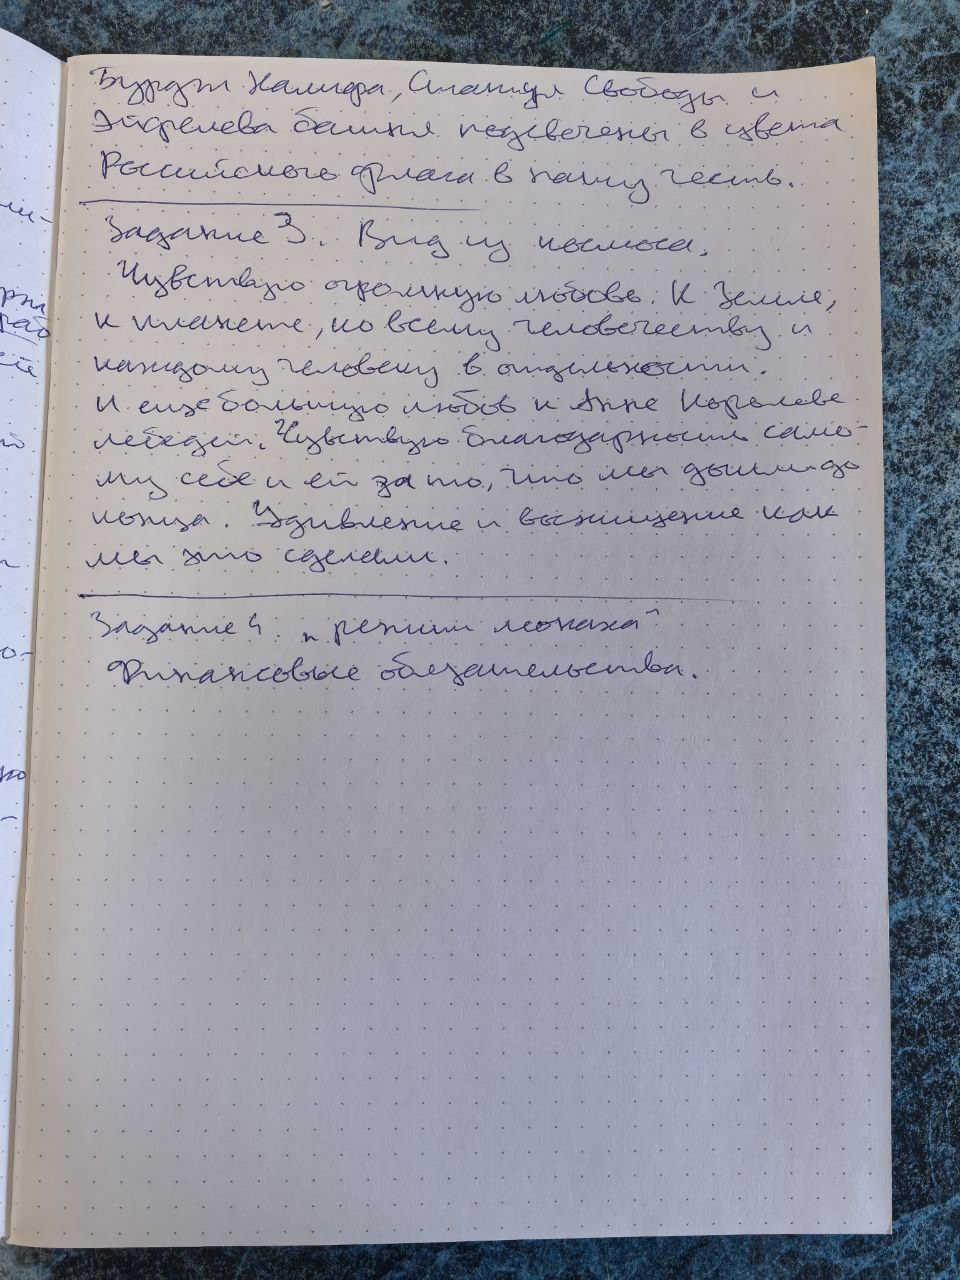 Бурдж Халифа, Статуя Свободы и
Эйфелева башня подсвечены в цвета
Российского флага в нашу честь.
Задание 3. Вид из космоса.
Чувствую огромную любовь. К Земле,
к планете, ко всему человечеству и
каждому человеку в отдельности.
И еще большую любов к Анне Королеве
лебедей. Чувствую благодарность само-
му себе и ей за то, что мы дошли до
конца. Удивление и восхищение как
мы это сделали.
Задание 4. "режим монаха"
Финансовые обязательства.